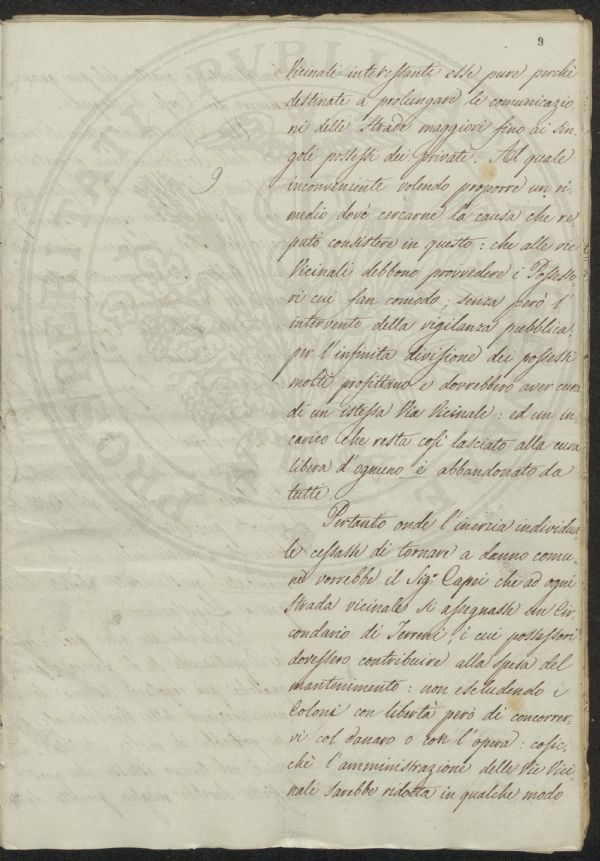 9
Vicinali interessanti esse pure perchè
destinate a prolungare le comunicazio
ni delle Strade maggiori fino ai sin,
goli possessi dei privati. Al quale
inconveniente volendo proporre un ri,
medio dovè cercarne la causa che re,
putò consistere in questo: che alle vie
Vicinali debbono provvedere i Possesso,
ri cui fan comodo; senza però l'
intervento della vigilanza pubblica:
per l'infinita divisione dei possessi
molti profittano e dovrebbero aver cura
di un istessa Via Vicinale: ed un in,
carico che resta così lasciato alla cura
libera d'ognuno è abbandonato da
tutti.
Pertanto onde l'inerzia individua,
le cessasse di tornare a danno comu,
ne vorrebbe il Sigr. Capei che ad ogni
Strada vicinale si assegnasse un Cir,
condario di Terreni, i cui possessori
dovessero contribuire alla spesa del
mantenimento: non escludendo i
Coloni con libertà però di concorrer,
vi col danaro o con l'opera: cosic,
chè l'amministrazione delle Vie Vici,
nali sarebbe ridotta in qualche modo
9
PROPRIETÀ PUBBLICA